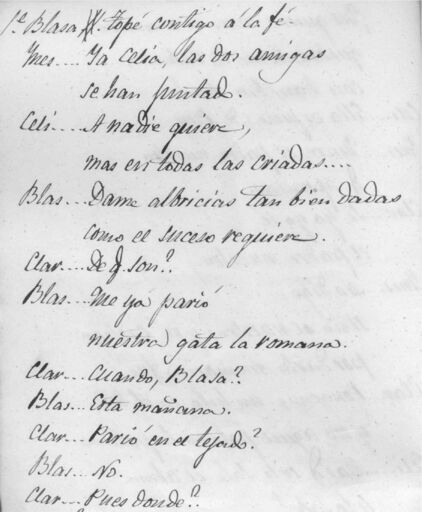 Blasa. topé contigo á la fé.
Ines.... Ya Celia, las dos amigas
se han juntado.
Celi.... A nadie quiere,
mas en todas las criadas....
Blas... Dame albricias tan bien dadas
como el suceso requiere.
Clar... De q̃ son?.
Blas... Me ya parió
nuestra gata la romana.
Clar.... Cuando, Blasa?.
Blas... Esta mañana.
Clar... Parió en el tejado?.
Blas... No.
Clar... Pues donde?.